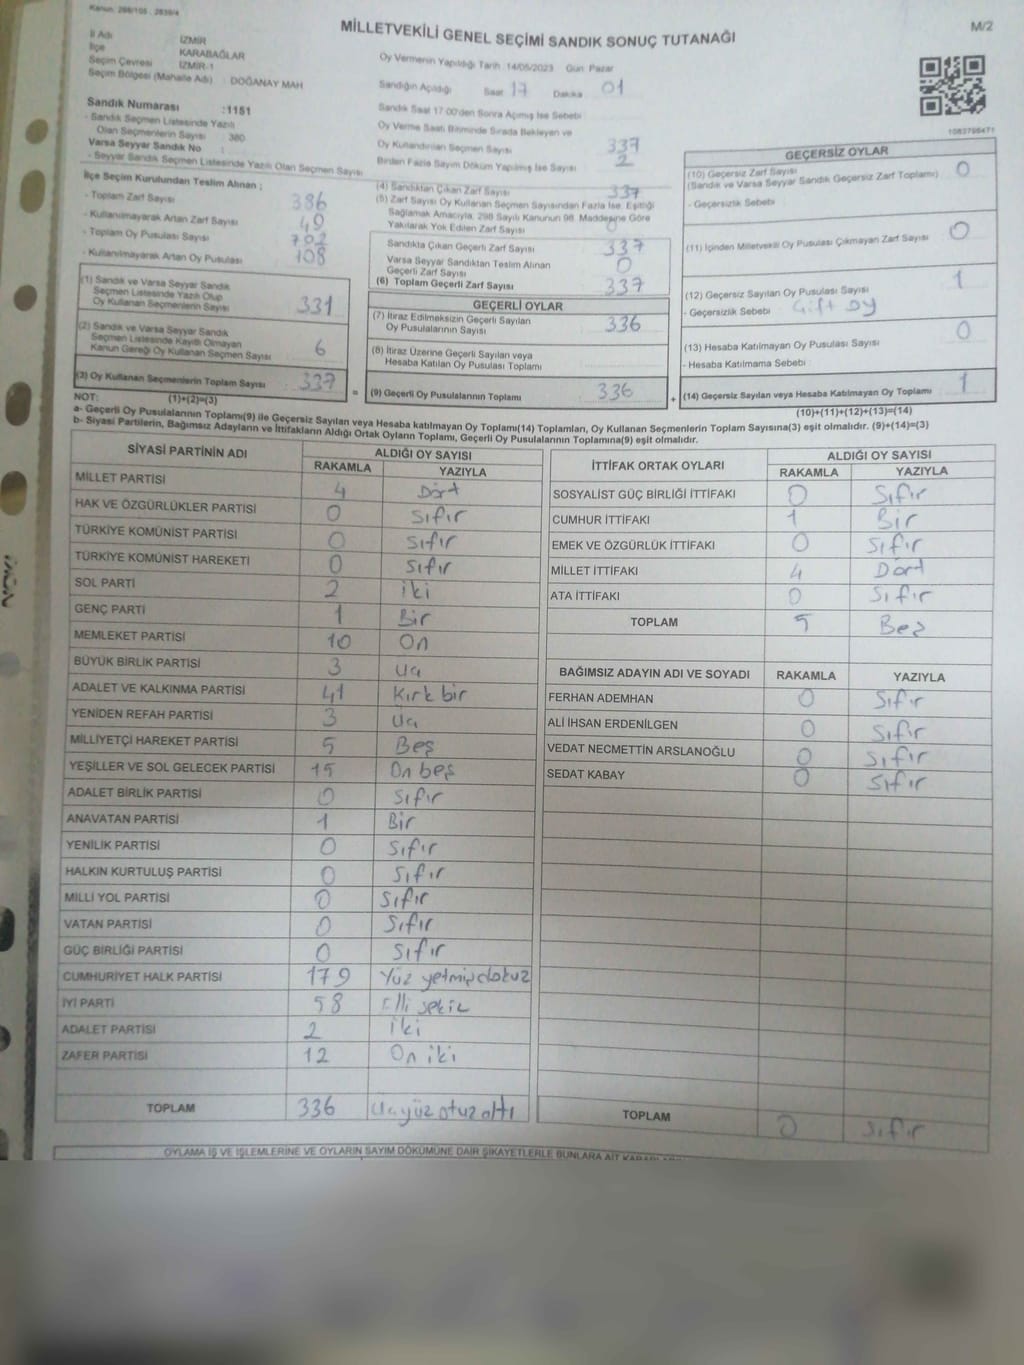 Kanun: 298/105 , 2839/4
MİLLETVEKİLİ GENEL SEÇİMİ SANDIK SONUÇ TUTANAĞI
M/2
İl Adı İZMİR
İlçe KARABAĞLAR
Seçim Çevresi İZMİR-1
Seçim Bölgesi (Mahalle Adı) : DOĞANAY MAH
Oy Vermenin Yapıldığı Tarih :14/05/2023 Gün: Pazar
Sandığın Açıldığı Saat 17 Dakika 01
Sandık Numarası :1151
- Sandık Seçmen Listesinde Yazılı
Olan Seçmenlerin Sayısı 380
Varsa Seyyar Sandık No :
- Seyyar Sandık Seçmen Listesinde Yazılı Olan Seçmen Sayısı
Sandık Saat 17:00'den Sonra Açılmış İse Sebebi
Oy Verme Saati Bitiminde Sırada Bekleyen ve
Oy Kullandırılan Seçmen Sayısı 337
Birden Fazla Sayım Döküm Yapılmış İse Sayısı 2
1083798471
İlçe Seçim Kurulundan Teslim Alınan ;
- Toplam Zarf Sayısı 386
- Kullanılmayarak Artan Zarf Sayısı 49
- Toplam Oy Pusulası Sayısı 702
- Kullanılmayarak Artan Oy Pusulası 108
(1) Sandık ve Varsa Seyyar Sandık
Seçmen Listesinde Yazılı Olup
Oy Kullanan Seçmenlerin Sayısı 331
(2) Sandık ve Varsa Seyyar Sandık
Seçmen Listesinde Kayıtlı Olmayan
Kanun Gereği Oy Kullanan Seçmen Sayısı 6
(3) Oy Kullanan Seçmenlerin Toplam Sayısı 337
(4) Sandıktan Çıkan Zarf Sayısı 337
(5) Zarf Sayısı Oy Kullanan Seçmen Sayısından Fazla İse, Eşitliği
Sağlamak Amacıyla, 298 Sayılı Kanunun 98. Maddesine Göre
Yakılarak Yok Edilen Zarf Sayısı 0
Sandıkta Çıkan Geçerli Zarf Sayısı 337
Varsa Seyyar Sandıktan Teslim Alınan
Geçerli Zarf Sayısı 0
(6) Toplam Geçerli Zarf Sayısı 337
GEÇERLİ OYLAR
(7) İtiraz Edilmeksizin Geçerli Sayılan
Oy Pusulalarının Sayısı 336
(8) İtiraz Üzerine Geçerli Sayılan veya
Hesaba Katılan Oy Pusulası Toplamı
= (9) Geçerli Oy Pusulalarının Toplamı 336 +
GEÇERSİZ OYLAR
(10) Geçersiz Zarf Sayısı 0
(Sandık ve Varsa Seyyar Sandık Geçersiz Zarf Toplamı)
- Geçersizlik Sebebi
(11) İçinden Milletvekili Oy Pusulası Çıkmayan Zarf Sayısı 0
(12) Geçersiz Sayılan Oy Pusulası Sayısı 1
- Geçersizlik Sebebi Çift oy
(13) Hesaba Katılmayan Oy Pusulası Sayısı 0
- Hesaba Katılmama Sebebi :
(14) Geçersiz Sayılan veya Hesaba Katılmayan Oy Toplamı 1
NOT: (1)+(2)=(3) (10)+(11)+(12)+(13)=(14)
a- Geçerli Oy Pusulalarının Toplamı(9) ile Geçersiz Sayılan veya Hesaba katılmayan Oy Toplamı(14) Toplamları, Oy Kullanan Seçmenlerin Toplam Sayısına(3) eşit olmalıdır. (9)+(14)=(3)
b- Siyasi Partilerin, Bağımsız Adayların ve İttifakların Aldığı Ortak Oyların Toplamı, Geçerli Oy Pusulalarının Toplamına(9) eşit olmalıdır.
SİYASİ PARTİNİN ADI ALDIĞI OY SAYISI
RAKAMLA YAZIYLA
MİLLET PARTİSİ 4 Dört
HAK VE ÖZGÜRLÜKLER PARTİSİ 0 Sıfır
TÜRKİYE KOMÜNİST PARTİSİ 0 Sıfır
TÜRKİYE KOMÜNİST HAREKETİ 0 Sıfır
SOL PARTİ 2 iki
GENÇ PARTİ 1 Bir
MEMLEKET PARTİSİ 10 On
BÜYÜK BİRLİK PARTİSİ 3 Üç
ADALET VE KALKINMA PARTİSİ 41 Kırk bir
YENİDEN REFAH PARTİSİ 3 Üç
MİLLİYETÇİ HAREKET PARTİSİ 5 Beş
YEŞİLLER VE SOL GELECEK PARTİSİ 15 On beş
ADALET BİRLİK PARTİSİ 0 Sıfır
ANAVATAN PARTİSİ 1 Bir
YENİLİK PARTİSİ 0 Sıfır
HALKIN KURTULUŞ PARTİSİ 0 Sıfır
MİLLİ YOL PARTİSİ 0 Sıfır
VATAN PARTİSİ 0 Sıfır
GÜÇ BİRLİĞİ PARTİSİ 0 Sıfır
CUMHURİYET HALK PARTİSİ 179 Yüz yetmişdokuz
İYİ PARTİ 58 Elli sekiz
ADALET PARTİSİ 2 iki
ZAFER PARTİSİ 12 On iki
TOPLAM 336 Üçyüz otuz altı
İTTİFAK ORTAK OYLARI ALDIĞI OY SAYISI
RAKAMLA YAZIYLA
SOSYALİST GÜÇ BİRLİĞİ İTTİFAKI 0 Sıfır
CUMHUR İTTİFAKI 1 Bir
EMEK VE ÖZGÜRLÜK İTTİFAKI 0 Sıfır
MİLLET İTTİFAKI 4 Dört
ATA İTTİFAKI 0 Sıfır
TOPLAM 5 Beş
BAĞIMSIZ ADAYIN ADI VE SOYADI RAKAMLA YAZIYLA
FERHAN ADEMHAN 0 Sıfır
ALİ İHSAN ERDENİLGEN 0 Sıfır
VEDAT NECMETTİN ARSLANOĞLU 0 Sıfır
SEDAT KABAY 0 Sıfır
TOPLAM 0 Sıfır
OYLAMA İŞ VE İŞLEMLERİNE VE OYLARIN SAYIM DÖKÜMÜNE DAİR ŞİKAYETLERLE BUNLARA AİT